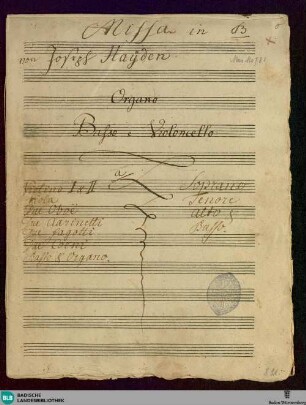 Missa in B
von Joseph Hayden
Organo
Basso e Violoncello
a
Violino I & II
Viola
Due Oboe
Due Clarinetti
Due Fagotti
Due Corni
Basso & Organo.
Soprano
Tenore
Alto &
Basso.
BLB BADISCHE
LANDESBIBLIOTHEK
Baden-Württemberg